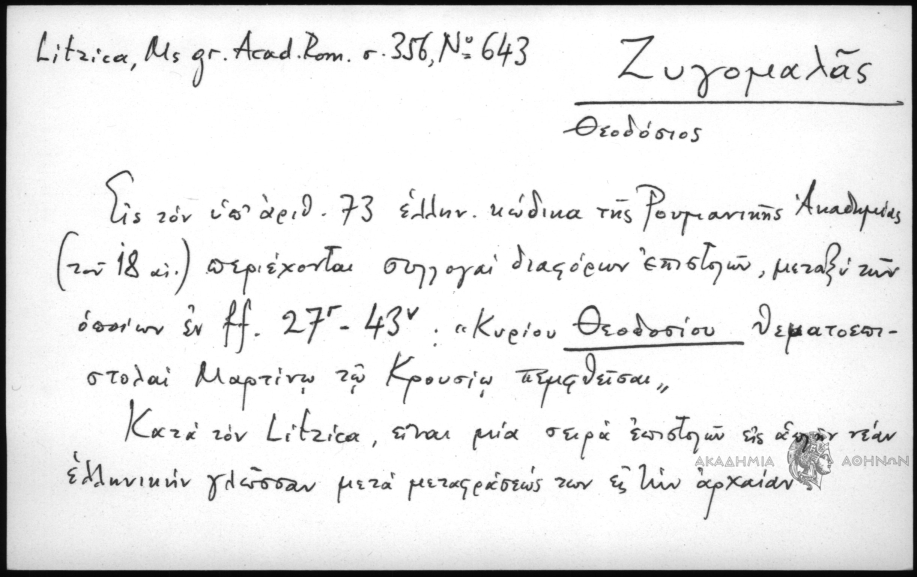 Litzica, Ms gr. Acad. Rom. σ. 356, Nº 643
Ζυγομαλᾶς
Θεοδόσιος
Εἰς τὸν ὑπ' ἀριθ. 73 ἑλλην. κώδικα τῆς Ρουμανικῆς Ἀκαδημίας
(τοῦ 18 αἰ.) περιέχονται συλλογαὶ διαφόρων ἐπιστολῶν, μεταξὺ τῶν
ὁποίων ἐν ff. 27r - 43v : "Κυρίου Θεοδοσίου θεματοεπι-
στολαὶ Μαρτίνῳ τῷ Κρουσίῳ πεμφθεῖσαι"
Κατὰ τὸν Litzica, εἶναι μία σειρὰ ἐπιστολῶν εἰς ἁπλῆν νέαν
ἑλληνικὴν γλῶσσαν μετὰ μεταφράσεώς των εἰς τὴν ἀρχαίαν.
ΑΚΑΔΗΜΙΑ ΑΘΗΝΩΝ